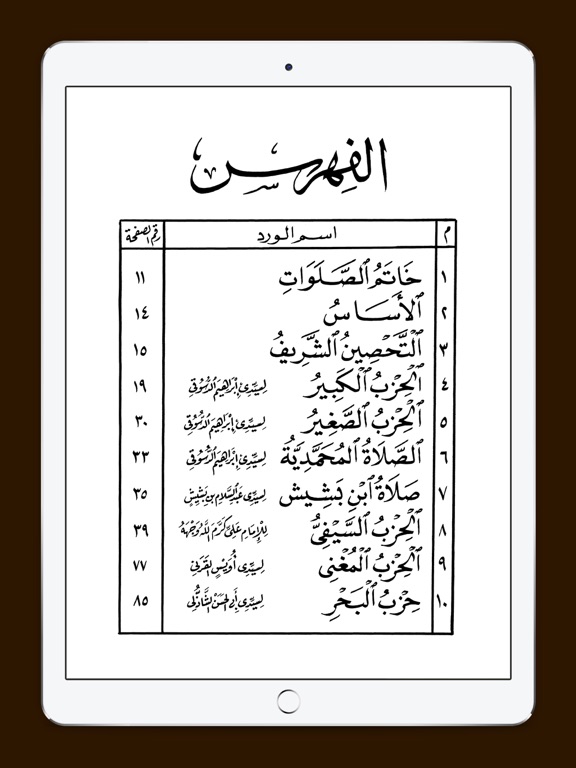 الفهرس
م اسم الورد رقم الصفحة
١ خَاتَمُ ٱلصَّلَوَاتِ ١١
٢ ٱلأَسَاسُ ١٤
٣ ٱلتَّحْصِينُ ٱلشَّرِيفُ ١٥
٤ ٱلْحِزْبُ ٱلْكَبِيرُ لِسيِّدِى إِبْرَاهِيمَ الدُّسُوقِى ١٩
٥ ٱلْحِزْبُ ٱلصَّغِيرُ لِسيِّدِى إِبْرَاهِيمَ الدُّسُوقِى ٣٠
٦ ٱلصَّلَاةُ ٱلْمُحَمَّدِيَّةُ لِسيِّدِى إِبْرَاهِيمَ الدُّسُوقِى ٣٢
٧ صَلَاةُ ٱبْنِ بَشِيش لِسيِّدِى عَبْدِالسَّلَامِ بنِ بَشِيشٍ ٣٥
٨ ٱلْحِزْبُ ٱلسَّيْفِىُّ لِلإِمَامِ عَلىٍّ كَرَّمَ اللهُ وَجْهَهُ ٣٩
٩ ٱلْحِزْبُ ٱلْمُغْنِى لِسيِّدِى أُوَيْسٍ القَرَنِى ٧٧
١٠ حِزْبُ ٱلْبَحْرِ لِسيِّدِى أَبِى الحَسَنِ الشَّاذُلِى ٨٥